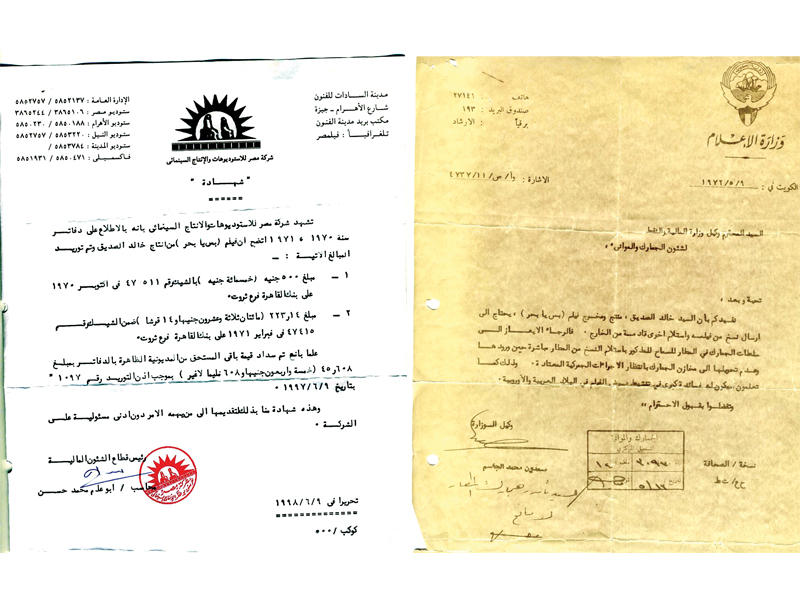 مدينة السادات للفنون
شارع الأهرام - جيزة
مكتب بريد مدينة الفنون
تلغرافيا : فيلمصر
الإدارة العامة : ٥٨٥٢١٣٧ / ٥٨٥٢٧٥٧
ستوديو مصر : ٣٨٦٥١٠٦ / ٣٨٦٥٢٤٤
ستوديو الأهرام : ٥٨٥٠١٨٨ / ٥٨٥٠٢٣٠
ستوديو النيل : ٥٨٥٣٢٢٠ / ٥٨٥٢٧٥٧
ستوديو المدينة : ٥٨٥٣٧٨٤ /
فاكسميلى : ٥٨٥٠٤٧١ / ٥٨٥١٩٣١
شركة مصر للاستوديوهات والإنتاج السينمائى
" شهادة "
تشهد شركة مصر للاستوديوهات والانتاج السينمائى بانه بالاطلاع على دفاتر
سنة ١٩٧٠ ، ١٩٧١ اتضح ان فيلم ( بس يا بحر ) من انتاج خالد الصديق وتم توريد
المبالغ الاتية : ــ
١ – مبلغ ٥٠٠ جنيه ( خمسمائة جنيه ) بالشيك رقم ٤٧٥١١ فى اكتوبر ١٩٧٠
على بنك القاهرة فرع ثروت
٢ – مبلغ ٢٢٣,١٤ ( مائتان ثلاثة وعشرون جنيها و١٤ قرشا ) ضمن الشيك رقم
٤٧٤١٥ فى فبراير ١٩٧١ على بنك القاهرة فرع ثروت
علما بانه تم سداد قيمة باقى المستحق من المديونية الظاهرة بالدفاتر بمبلغ
٤٥,٦٠٨ ( خمسة واربعون جنيها و٦٠٨ مليما لاغير ) بموجب اذن التوريد رقم ١٠٩٧
بتاريخ ١٩٩٧/٦/٩ ٠
وهذه شهادة منا بذلك لتقديمها الى من يهمه الامر دون ادنى مسئولية على
الشركة ٠
رئيس قطاع الشئون المالية
محاسب / محمد حسن
تحريرا فى ١٩٩٨/٦/٩
كوكب / ٥٠٠
وزارة الإعلام
هاتف : ٢٧١٤١
صندوق البريد : ١٩٣
برقيا : الارشاد
الكويت في : ١٩٧٢/٥/٩
الاشارة : وأ/ص/١١/٤٧٣٧
السيد المحترم وكيل وزارة المالية والنفط
لشئون الجمارك والموانى
تحية وبعد ،
نفيدكم بأن السيد خالد الصديق ، منتج ومخرج فيلم ( بس يا بحر ) ، يحتاج الى
ارسال نسخ من فيلمه واستلام اخرى قادمة من الخارج ، فالرجاء الايعاز الى
سلطات الجمارك في المطار للسماح للمذكور باستلام النسخ من المطار مباشرة حين ورودها
وعدم تحويلها الى مخازن الجمارك بانتظار الاجراءات الجمركية المعتادة ، وذلك كما
تعلمون سيكون له فائدة كبرى في تنشيط عرض الفيلم في البلاد العربية والأوروبية .
وتفضلوا بقبول الاحترام ،،
وكيل الوزارة
سعدون محمد الجاسم
نسخة / الصحافة
الجمارك والموانى